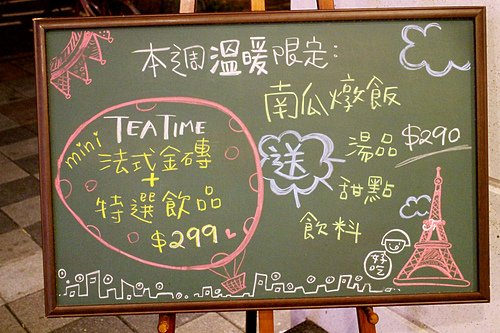 本週溫暖限定:
TEATIME
mini
法式金磚
+
特選飲品
$299
南瓜燉飯
送
湯品
$290
甜點
飲料
好吃